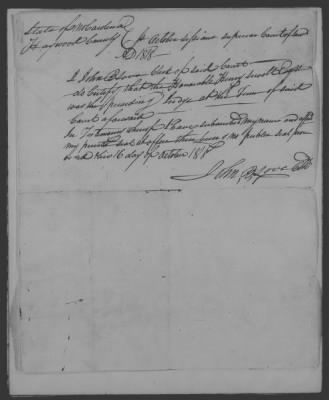 State of No Carolina
Haywood County } At October Sessions Superior Court of Law
AD 1818
I John B Love Clerk of said Court
do Certify that the Honorable Henry Seawell Esqr
was the presiding Judge at the Term of said
Court aforesaid
In Testimony whereof I have subscribed my name and affixd
my private seal at office there being no public seal pro
vided this 16 day of October 1818
John B Love Clk